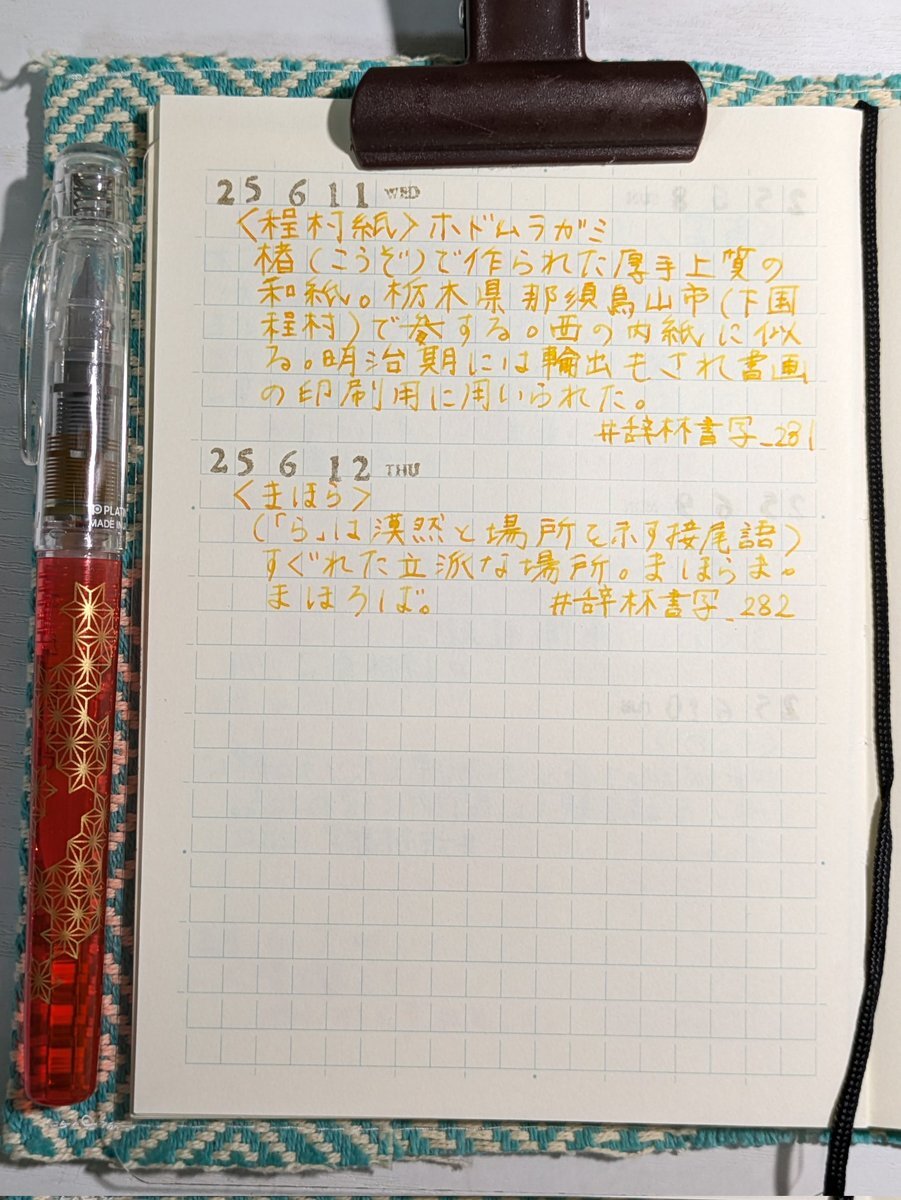 25 6 11 WED
〈程村紙〉ホドムラガミ
楮(こうぞ)で作られた厚手上質の
和紙。栃木県那須烏山市(下国
程村)で発する。西の内紙に似
る。明治期には輸出もされ書画
の印刷用に用いられた。
#辞林書写_281
25 6 12 THU
〈まほら〉
(「ら」は漠然と場所を示す接尾語)
すぐれた立派な場所。まほらま。
まほろば。 #辞林書写_282
PLATIN
MADE IN